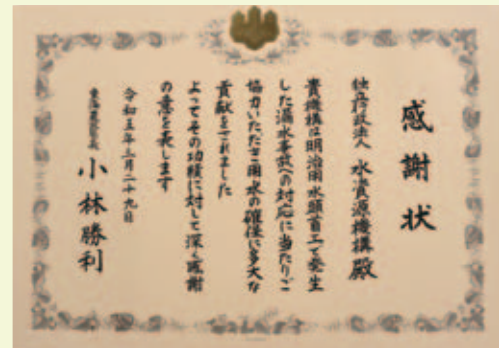 感謝状
独立行政法人 水資源機構 殿
貴機構は明治用水頭首工で発生
した漏水事故への対応に当たりご
協力いただき用水の確保に多大な
貢献をされました
よってその功績に対して深く感謝
の意を表します
令和五年三月二十九日
東海農政局長 小林勝利